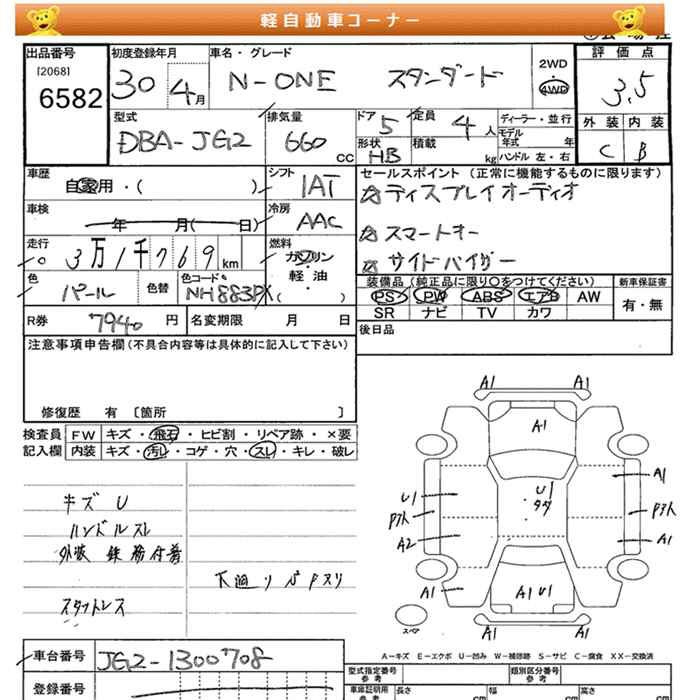 軽自動車コーナー
出品番号 初度登録年月 車名・グレード 2WD 評価点
[2068] 30 4月 N-ONE スタンダード 4WD 3.5
6582
型式 排気量 ドア 定員 ディーラー・並行 外装 内装
DBA-JG2 660 CC 5 4人 モデル年式 年 C B
形状 HB 積載 kg ハンドル 左・右
車歴 シフト セールスポイント (正常に機能するものに限ります)
自家用・( ) IAT ☆ディスプレイオーディオ
車検 年 月( 日) 冷房 AAC ☆スマートキー
走行 3万1千769km 燃料 ガソリン ☆サイドバイザー
軽・油 ( )
色 パール 色替 色コード NH883PX 装備品 (純正品に限り○をつけてください) 新車保証書
PS PW ABS エアB AW 有・無
R券 7940円 名変期限 月 日 SR ナビ TV カワ
注意事項申告欄 (不具合内容等は具体的に記入して下さい) 後日品
修復歴 有 〔箇所 〕
検査員 FW キズ・飛石・ヒビ割・リペア跡・×要
記入欄 内装 キズ・汚レ・コゲ・穴・スレ・キレ・破レ
キズ U
ハンドルスレ
外装 鉄粉付着
下廻りパドスリ
スタットレス
A1 A1
A1
A1
U1 U1
P3ト P3ト
A2 A1
A1 A1U1 A1
スペア
A1 A1
A-キズ E-エクボ U-凹み W-補修跡 S-サビ C-腐食 XX-交換済
車台番号 JG2-1300708 型式指定番号 参考 類別区分番号 参考
登録番号 車庫証明用 参考 長さ cm 幅 cm 高さ cm